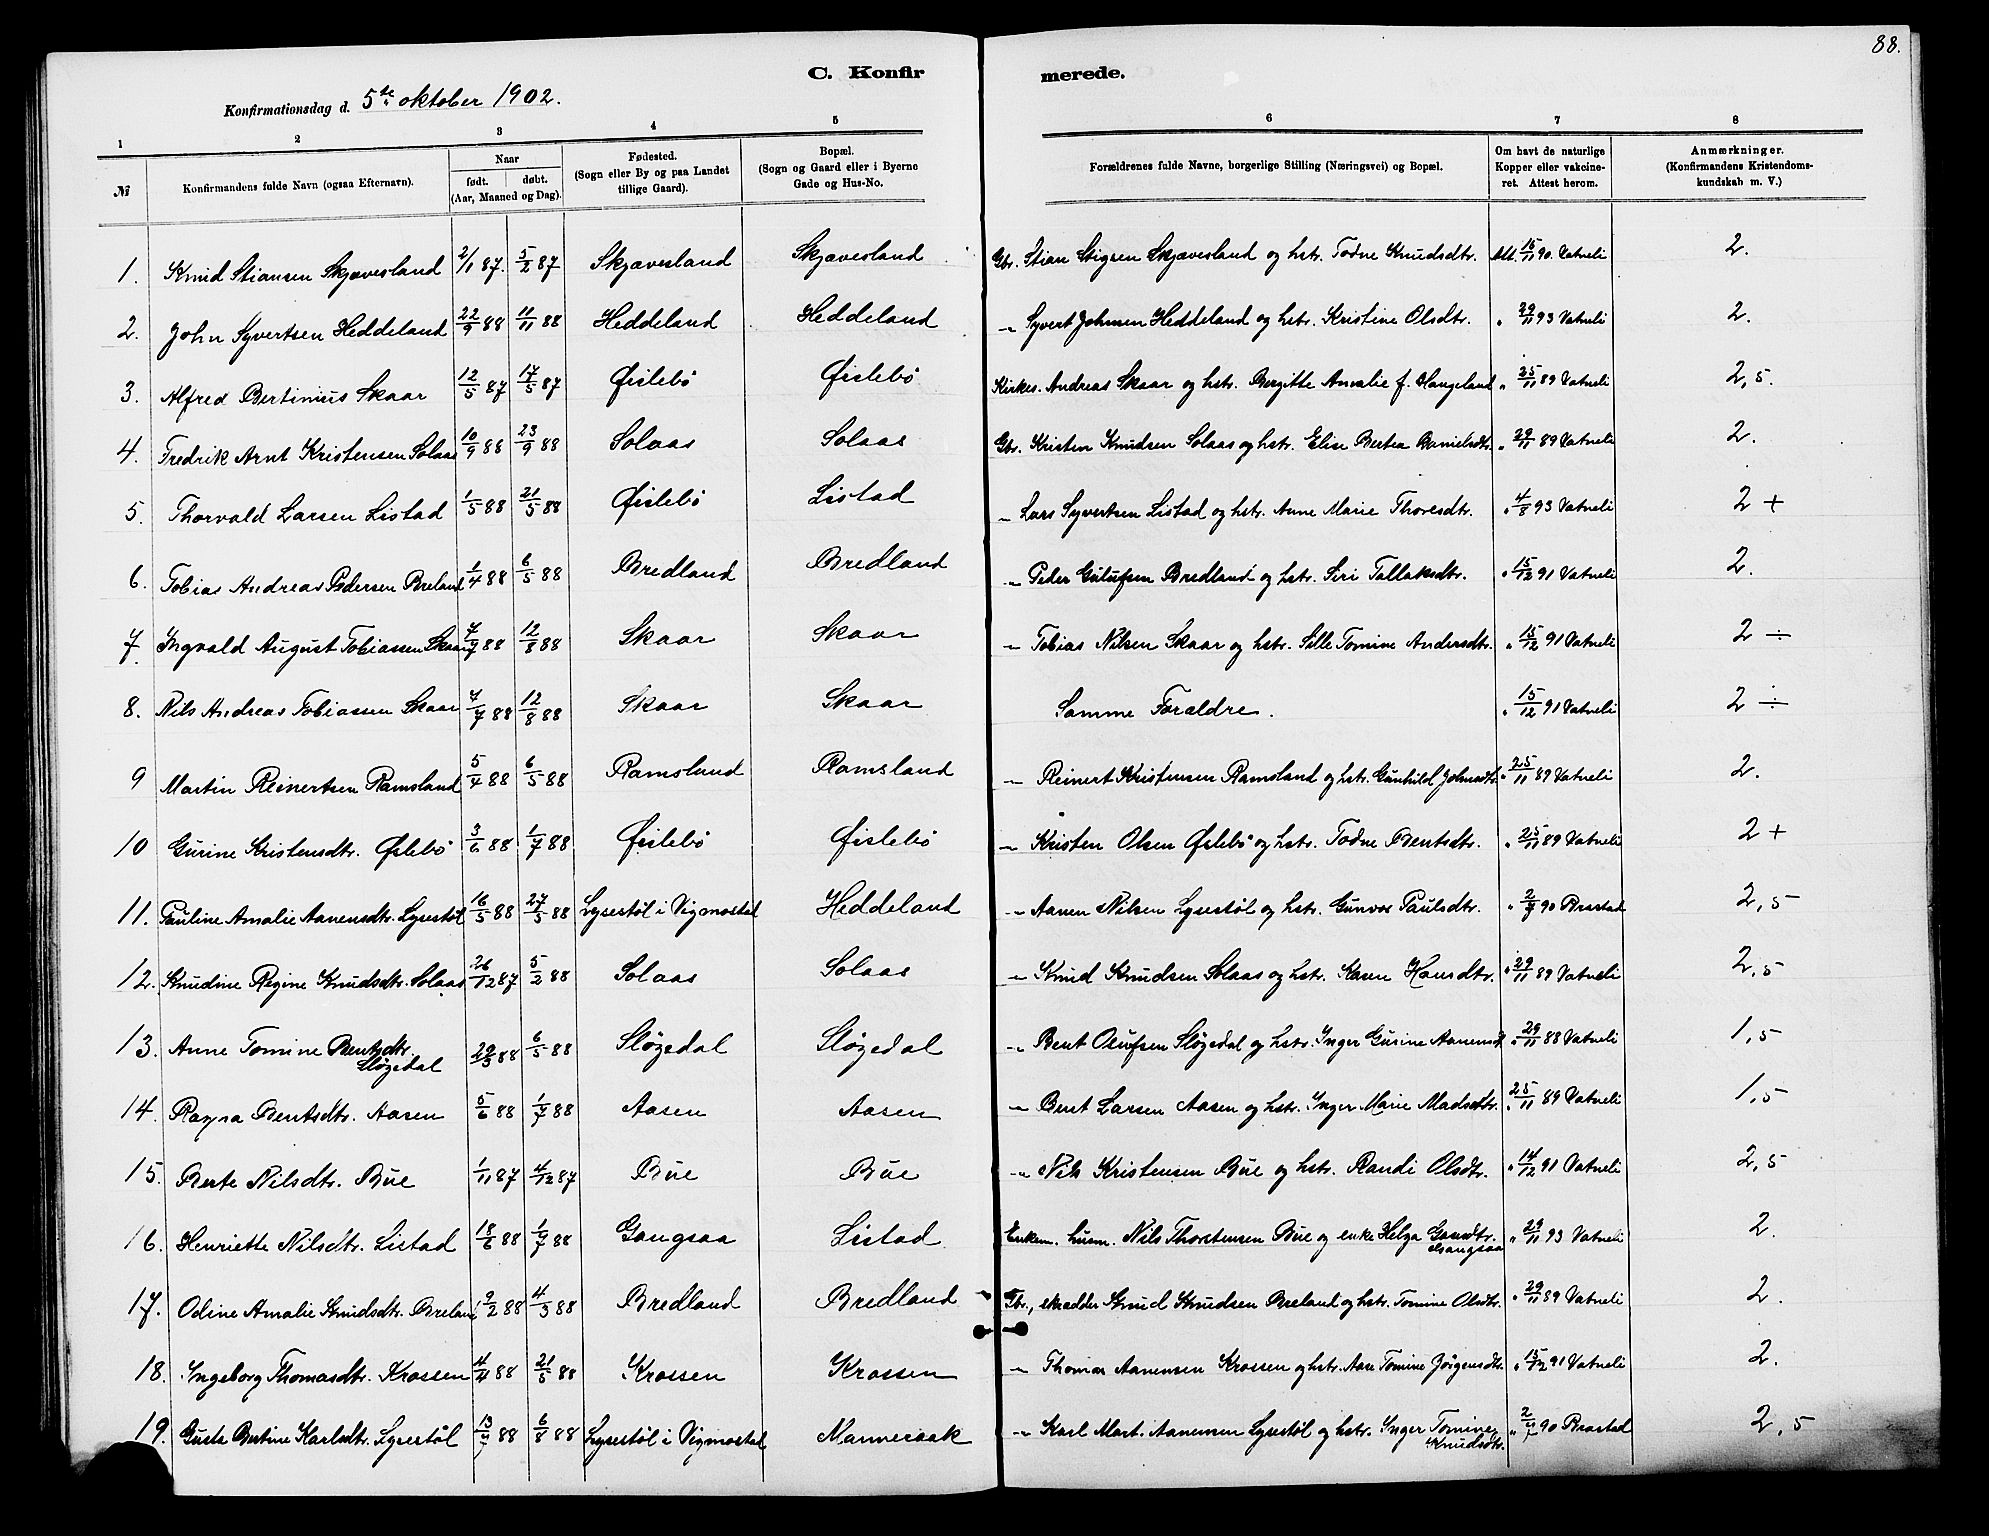 88.
C. Konfirmerede.
Konfirmationsdag d. 5te oktober 1902.
1 2 3 4 5 6 7 8
№ Konfirmandens fulde Navn (ogsaa Efternavn). Naar født. døbt. (Aar, Maaned og Dag). Fødested. (Sogn eller By og paa Landet tillige Gaard). Bopæl. (Sogn og Gaard eller i Byerne Gade og Hus-No. Forældrenes fulde Navne, borgerlige Stilling (Næringsvei) og Bopæl. Om havt de naturlige Kopper eller vakcineret. Attest herom. Anmærkninger. (Konfirmandens Kristendomskundskab m. V.)
1. Knud Stiansen Skjævesland 2/1 87. 5/2 87 Skjævesland Skjævesland Gbr. Stian Stigsen Skjævesland og hstr. Todne Knudsdtr. Att. 15/11 90. Vatneli 2.
2. John Syvertsen Heddeland 22/9 88 11/11 88 Heddeland Heddeland " Syvert Johnsen Heddeland og hstr. Kristine Olsdtr. " 29/11 93 Vatneli 2.
3. Alfred Bertinius Skaar 12/5 87 17/5 87 Øislebö Øislebö Kirkes. Andreas Skaar og hstr. Bergitte Amalie f. Haugeland " 25/11 89 Vatneli 2,5.
4. Fredrik Arnt Kristensen Solaas 10/9 88 23/9 88 Solaas Solaas Gbr. Kristen Knudsen Solaas og hstr. Elise Bertea Danielsdtr. " 29/11 89 Vatneli 2.
5. Thorvald Larsen Listad 1/5 88 21/5 88 Øislebö Listad " Lars Syvertsen Listad og hstr. Anne Marie Thoresdtr. " 4/8 93 Vatneli 2 +
6. Tobias Andreas Pedersen Breland 1/4 88 6/5 88 Bredland Bredland " Peder Gulufsen Bredland og hstr. Siri Tallaksdtr. " 15/12 91 Vatneli 2.
7. Yngvald August Tobiassen Skaar 7/7 88 12/8 88 Skaar Skaar " Tobias Nilsen Skaar og hstr. Sille Tomine Andersdtr. " 15/12 91 Vatneli 2 ÷
8. Nils Andreas Tobiassen Skaar 7/7 88 12/8 88 Skaar Skaar Samme Forældre. " 15/12 91 Vatneli 2 ÷
9 Martin Reinertsen Ramsland 5/4 88 6/5 88 Ramsland Ramsland " Reinert Kristensen Ramsland og hstr. Gunhild Johnsdtr. " 25/11 89 Vatneli 2.
10 Gurine Kristensdtr. Øslebö 3/6 88 1/7 88 Øislebö Øislebö " Kristen Olsen Øslebö og hstr. Todne Bentsdtr. " 25/11 89 Vatneli 2 +
11. Pauline Amalie Aanensdtr. Lysestöl 16/5 88 27/5 88 Lysestöl i Vigmostad Heddeland " Aanen Nilsen Lysestöl og hstr. Gunvor Paulsdtr. " 2/7 90 Brastad 2,5
12. Knudine Regine Knudsdtr. Solaas 26/12 87 5/2 88 Solaas Solaas " Knud Knudsen Solaas og hstr. Karen Hansdtr. " 29/11 89 Vatneli 2,5
13. Anne Tomine Bentsdtr. Slögedal 29/3 88 6/5 88 Slögedal Slögedal " Bent Olufsen Slögedal og hstr. Inger Gurine Aanensd " 29/11 88 Vatneli 1,5
14. Ragna Bentsdtr. Aasen 5/6 88 1/7 88 Aasen Aasen " Bent Larsen Aasen og hstr. Inger Marie Madsdtr. " 25/11 89 Vatneli 1,5
15. Berte Nilsdtr. Bue 1/11 87 4/12 87 Bue Bue " Nils Kristensen Bue og hstr. Randi Olsdtr. " 14/12 91 Vatneli 2,5
16. Henriette Nilsdtr. Listad 18/6 88 1/7 88 Gangsaa Listad Enkem. husm. Nils Thorstensen Bue og enke Helga Gansdtr. Gangsaa " 29/11 93 Vatneli 2.
17. Odine Amalie Knudsdtr. Breland 9/2 88 4/3 88 Bredland Bredland Gbr., skrædder Knud Knudsen Breland og hstr. Tomine Olsdtr. " 29/11 89 Vatneli 2.
18. Ingeborg Thomasdtr. Krossen 4/4 88 21/5 88 Krossen Krossen " Thomas Aanensen Krossen og hstr. Aase Tomine Jörgensdtr. " 15/12 91 Vatneli 2.
19. Gusta Bertine Karlsdtr. Lysestöl 13/7 88 6/8 88 Lysestöl i Vigmostad Mannevaak " Karl Mart. Aanensen Lysestöl og hstr. Inger Tomine Knudsdtr. " 2/7 90 Brastad 2,5